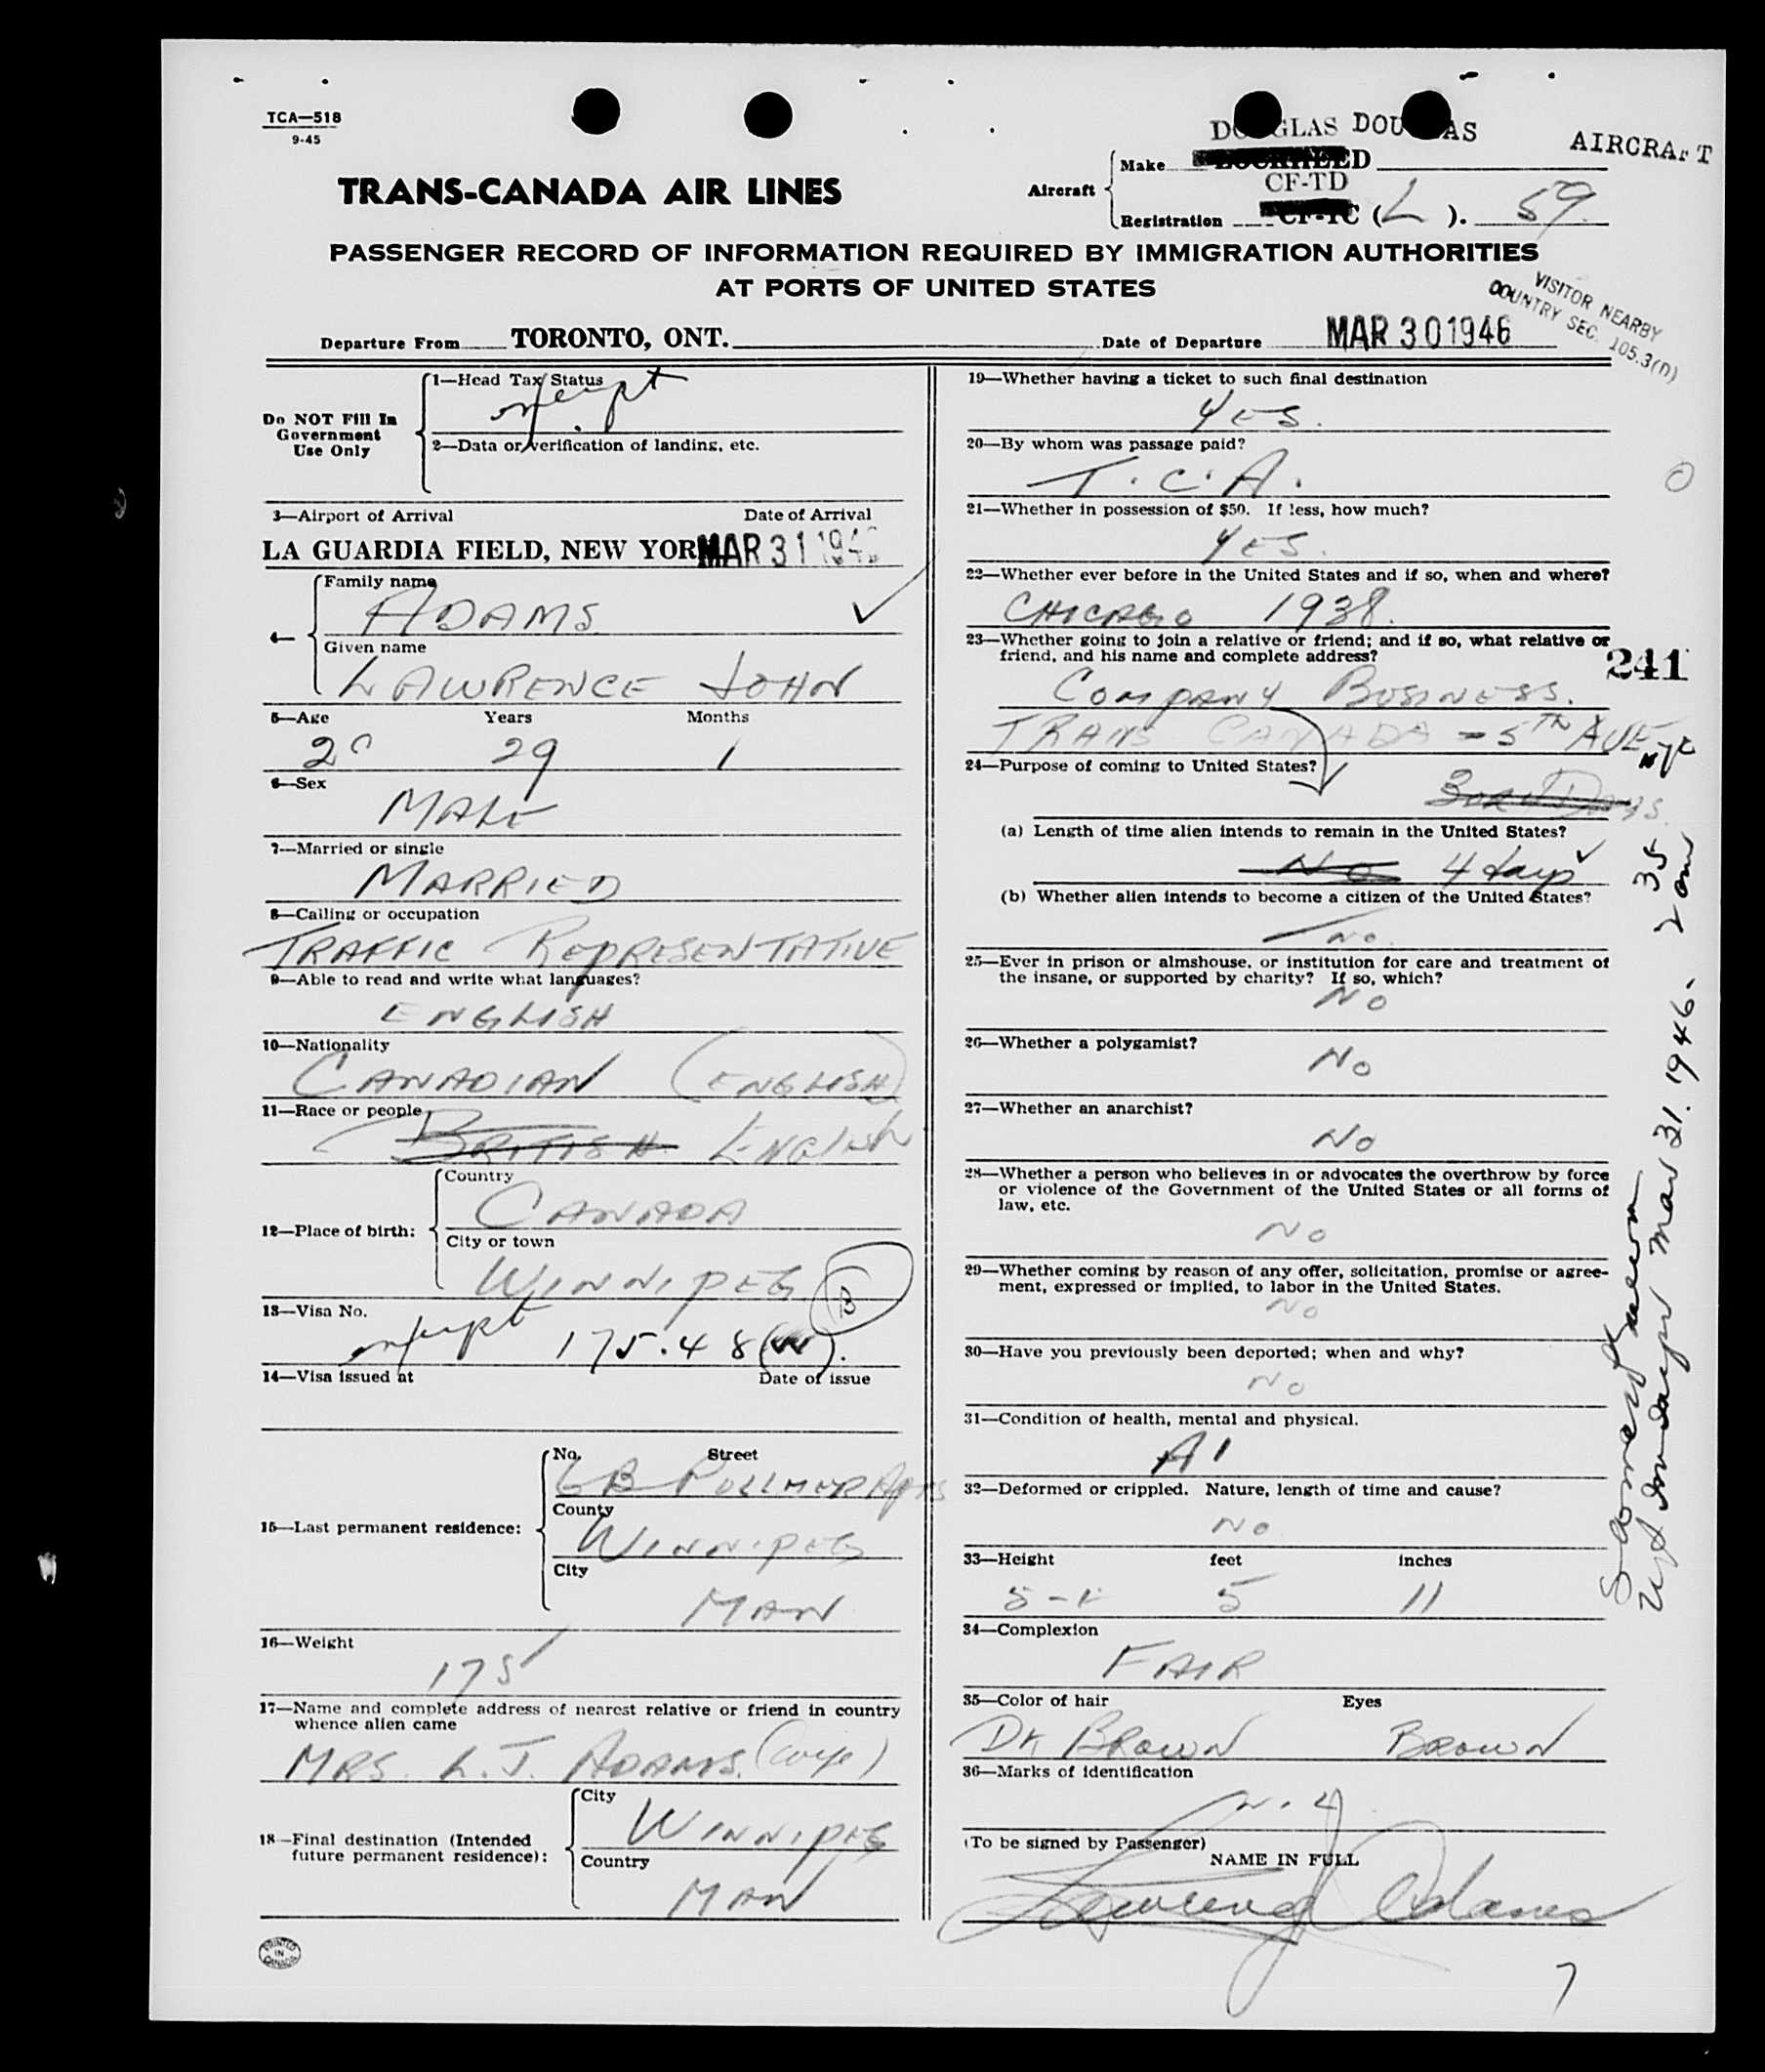 TCA—518
9-45
DOUGLAS DOUGLAS AIRCRAFT
TRANS-CANADA AIR LINES
Aircraft
Make LOCKHEED
CF-TD
Registration CF-TC (L ). 59
PASSENGER RECORD OF INFORMATION REQUIRED BY IMMIGRATION AUTHORITIES
AT PORTS OF UNITED STATES
VISITOR NEARBY
COUNTRY SEC. 105.3(n)
Departure From TORONTO, ONT. Date of Departure MAR 30 1946
Do NOT Fill In
Government
Use Only
1—Head Tax Status
exempt
2—Data or verification of landing, etc.
3—Airport of Arrival Date of Arrival
LA GUARDIA FIELD, NEW YORK MAR 31 1946
4—
Family name
ADAMS
Given name
LAWRENCE JOHN
5—Age Years Months
29 1
6—Sex
MALE
7—Married or single
MARRIED
8—Calling or occupation
TRAFFIC REPRESENTATIVE
9—Able to read and write what languages?
ENGLISH
10—Nationality
CANADIAN (ENGLISH)
11—Race or people
BRITISH ENGLISH
12—Place of birth:
Country
CANADA
City or town
WINNIPEG
B
13—Visa No.
exempt 175.48(w).
14—Visa issued at Date of issue
15—Last permanent residence:
No. Street
6B PULLMER APTS
County
WINNIPEG
City
MAN
16—Weight
175
17—Name and complete address of nearest relative or friend in country
whence alien came
MRS. L.J. ADAMS. (wife)
18—Final destination (Intended
future permanent residence):
City
WINNIPEG
Country
MAN
PRINTED
IN
CANADA
19—Whether having a ticket to such final destination
YES.
20—By whom was passage paid?
T.C.A.
21—Whether in possession of $50. If less, how much?
YES.
22—Whether ever before in the United States and if so, when and where?
CHICAGO 1938.
23—Whether going to join a relative or friend; and if so, what relative or
friend, and his name and complete address?
241
COMPANY BUSINESS.
TRANS CANADA - 5TH AVE NYC
24—Purpose of coming to United States?
DAYS.
(a) Length of time alien intends to remain in the United States?
NO 4 days
(b) Whether alien intends to become a citizen of the United States?
NO.
25—Ever in prison or almshouse, or institution for care and treatment of
the insane, or supported by charity? If so, which?
NO
26—Whether a polygamist?
NO
27—Whether an anarchist?
NO
28—Whether a person who believes in or advocates the overthrow by force
or violence of the Government of the United States or all forms of
law, etc.
NO
29—Whether coming by reason of any offer, solicitation, promise or agree-
ment, expressed or implied, to labor in the United States.
NO
30—Have you previously been deported; when and why?
NO
31—Condition of health, mental and physical.
A1
32—Deformed or crippled. Nature, length of time and cause?
NO
33—Height feet inches
5 11
34—Complexion
FAIR
35—Color of hair Eyes
DK BROWN BROWN
36—Marks of identification
(To be signed by Passenger)
NAME IN FULL
Lawrence J Adams
7
Mar 31. 1946. 2 35 am